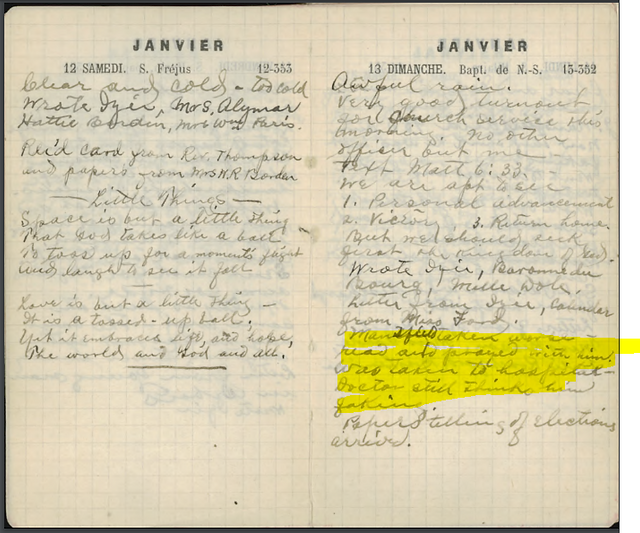 JANVIER
12 SAMEDI. S. Fréjus 12-353
Clear and cold - too cold
Wrote Izie, Mrs. Alymar
Hattie Bordin, Mrs Wm Paris.
Rec'd card from Rev. Thompson
and papers from Mrs W.R. Borden
— Little Things —
Space is but a little thing
That God takes like a ball
To toss up for a moments flight
And laugh to see it fall
Love is but a little thing —
It is a tossed-up ball.
Yet it embraces life, and hope,
The world, and God and all.
JANVIER
13 DIMANCHE. Bapt. de N.-S. 13-352
Awful rain.
Very good turnout
for church service this
morning. No other
officer but me —
Text Matt 6:33.
We are apt to see
1. Personal advancement
2. Victory, 3. Return home.
But we should seek
first the kingdom of God.
Wrote Izie, Baronne du
Bourg, Mlle Dole.
Letter from Izie, calendar
from Miss Ford.
Man taken worse —
read and prayed with him.
Was taken to hospital —
Doctor still thinks him
faking.
Papers telling of elections
arrived.